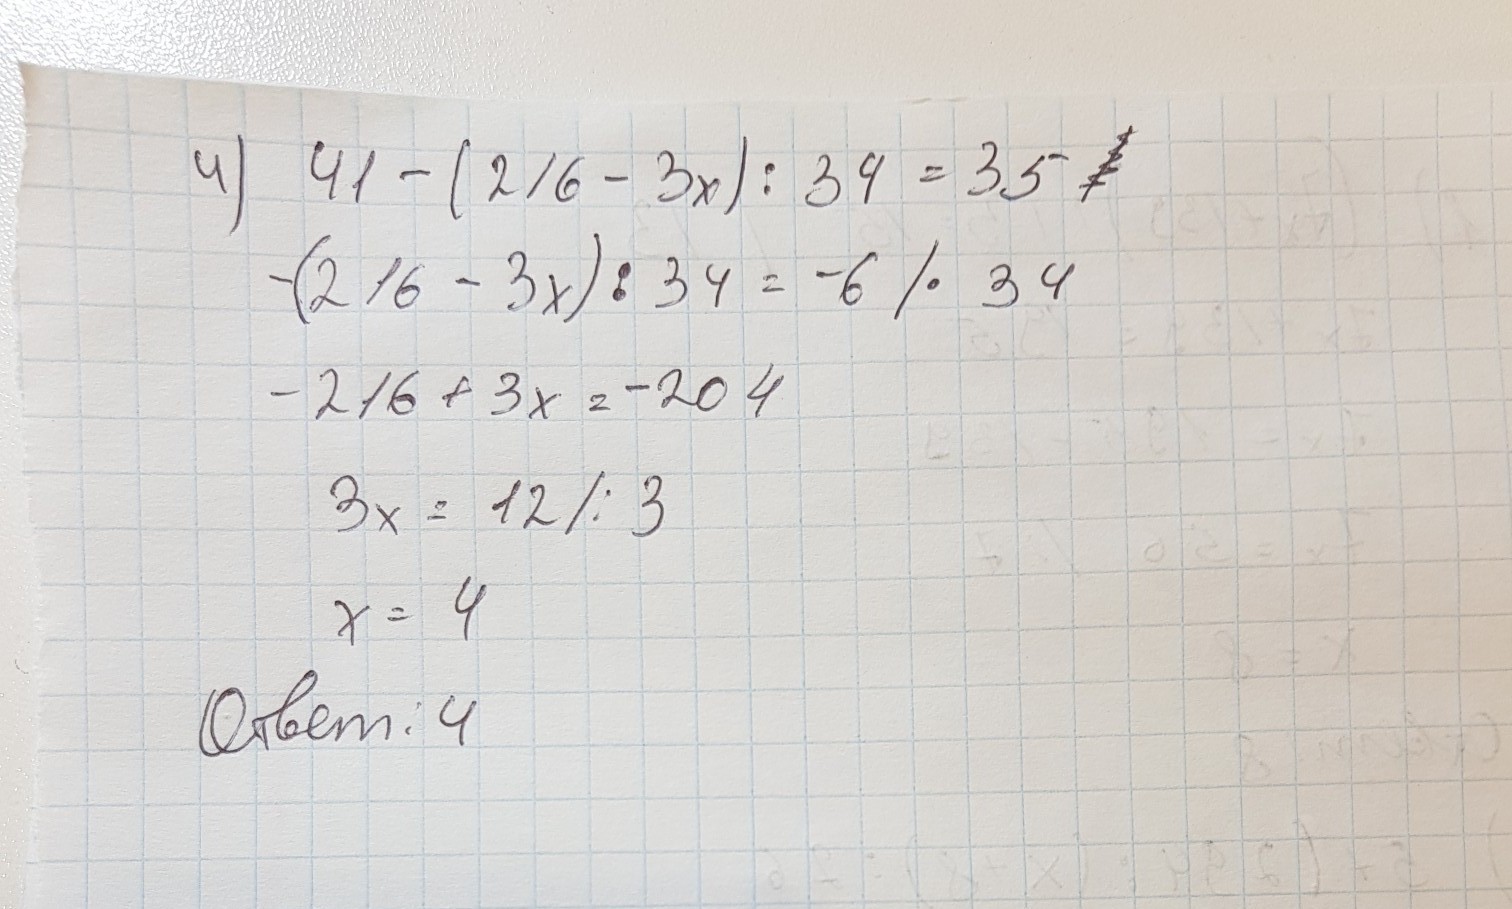 4) 41 - (216 - 3x) : 34 = 35
-(216 - 3x) : 34 = -6 / · 34
-216 + 3x = -204
3x = 12 / : 3
x = 4
Ответ: 4